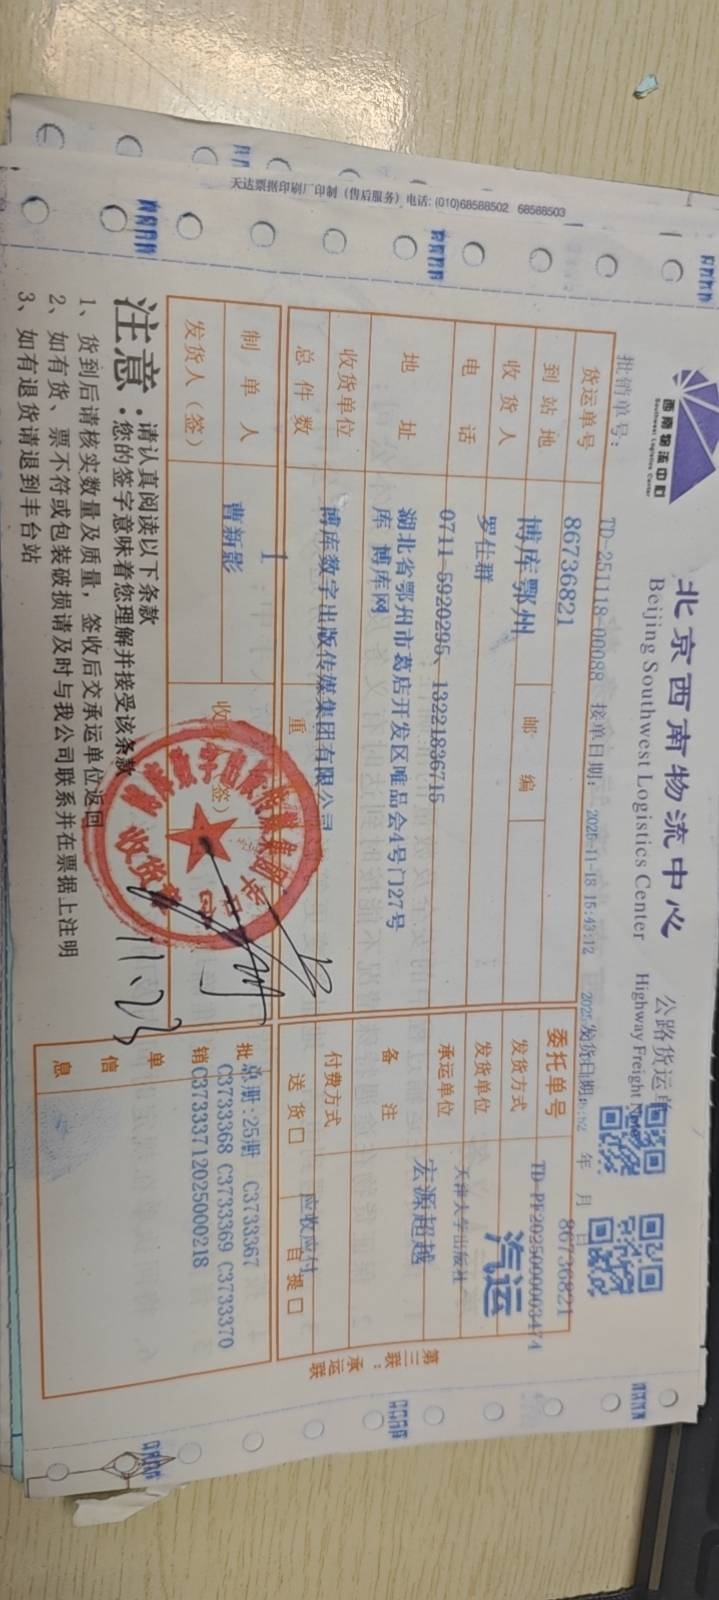 天达票据印刷厂印制（售后服务）电话: (010)68588502 68588503
西南物流中心
Southwest Logistics Center
北京西南物流中心
Beijing Southwest Logistics Center
公路货运单
Highway Freight
批销单号: TD-251118-00088 接单日期: 2025-11-18 15:43:12 发货日期: 年 月 日
货运单号 86736821
委托单号 86736821
TD-PF2025000003474
到站地 博库鄂州 邮编
发货方式 汽运
收货人 罗仕群
发货单位 天津大学出版社
电话 0711-5920295、13221836715
承运单位 宏源超越
地址 湖北省鄂州市葛店开发区唯品会4号门27号
库 博库网
备注
收货单位 博库数字出版传媒集团有限公司
付费方式 应收应付
总件数 1 重
送货□ 自提□
制单人 曹新影
发货人（签）
收货章
11.23
批销单信息
总册:25册 C3733367
C3733368 C3733369 C3733370
C37333712025000218
第三联：承运联
注意：请认真阅读以下条款
您的签字意味着您理解并接受该条款
1、货到后请核实数量及质量，签收后交承运单位返回
2、如有货、票不符或包装破损请及时与我公司联系并在票据上注明
3、如有退货请退到丰台站